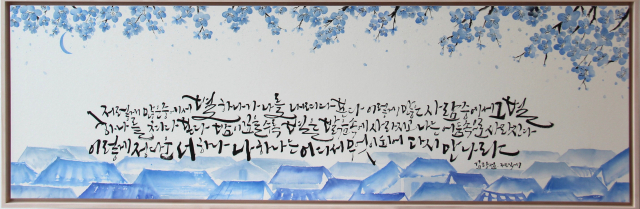 저렇게 많은 중에서 별 하나가 나를 내려다 본다 이렇게 많은 사람 중에서 그 별
하나를 쳐다본다 밤이 깊을수록 별은 밝음 속에 사라지고 나는 어둠 속으로 사라진다
이렇게 정다운 너 하나 나 하나는 어디서 무엇이 되어 다시 만나랴